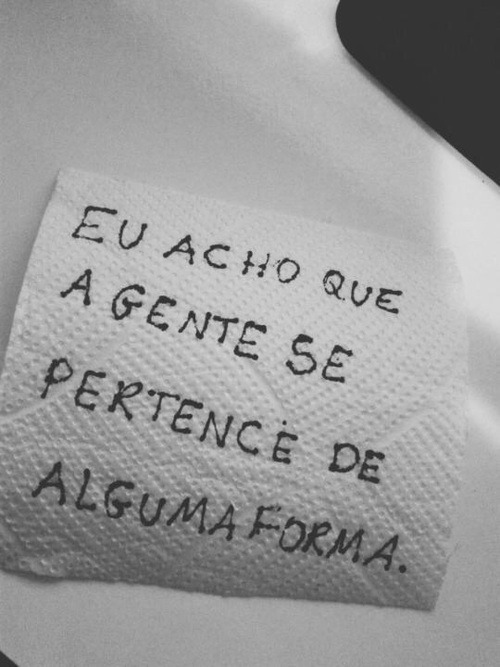 EU ACHO QUE
A GENTE SE
PERTENCE DE
ALGUMA FORMA.